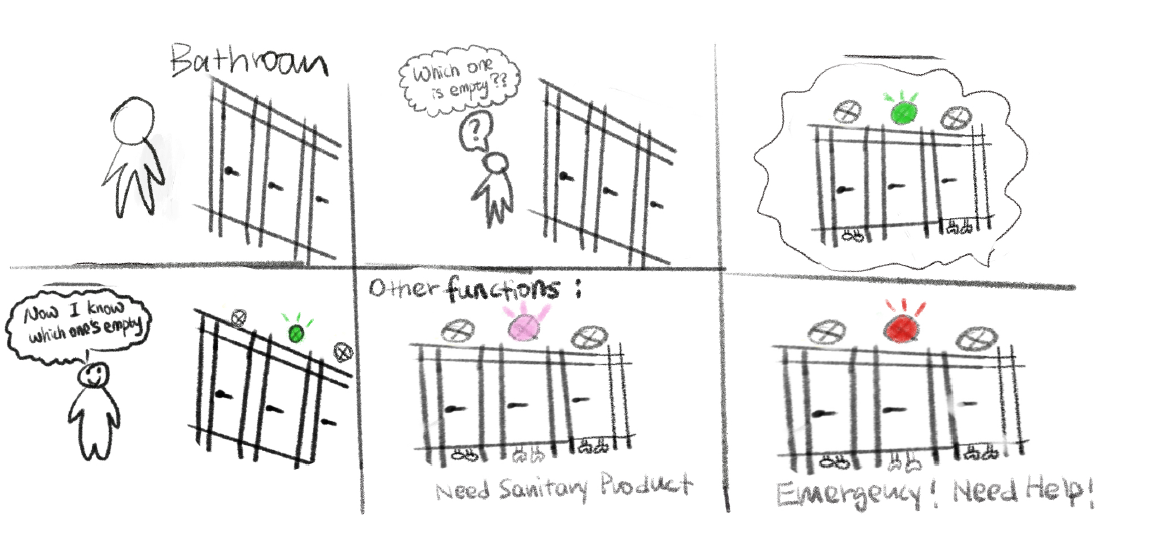 Bathroom
Which one
is empty??
?
Now I know
which one's empty
Other functions:
Need Sanitary Product
Emergency! Need Help!